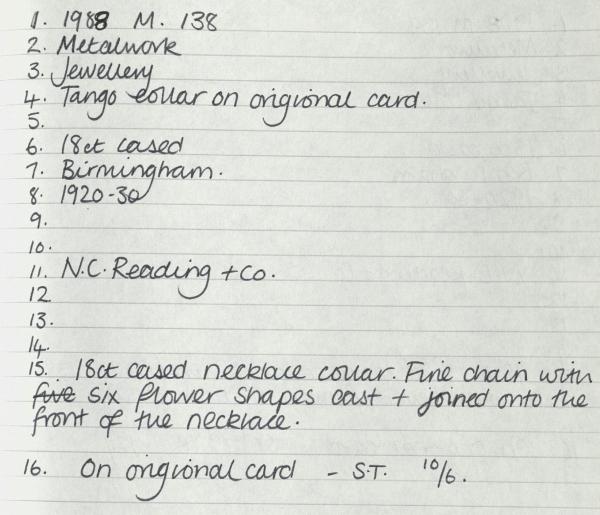 1. 1988 M. 138
2. Metalwork
3. Jewellery
4. Tango collar on origional card.
5.
6. 18ct cased
7. Birmingham.
8. 1920-30
9.
10.
11. N.C. Reading + Co.
12
13.
14.
15. 18ct cased necklace collar. Fine chain with
five six flower shapes cast + joined onto the
front of the necklace.
16. On origional card - S.T. 10/6.